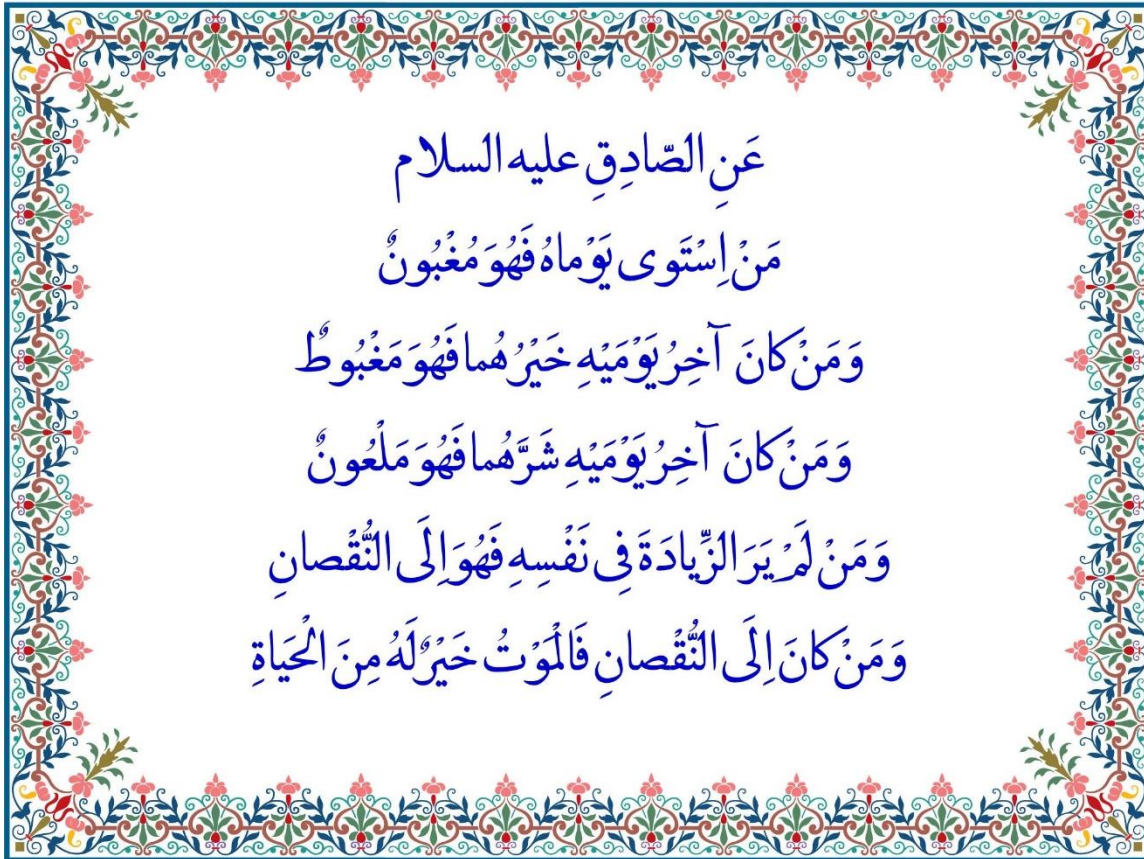 عَنِ الصّادِقِ عليه السلام
مَنْ اِسْتَوى يَوْماهُ فَهُوَ مُغْبُونٌ
وَ مَنْ كانَ آخِرُ يَوْمَيْهِ خَيْرُ هُما فَهُوَ مَغْبُوطٌ
وَ مَنْ كانَ آخِرُ يَوْمَيْهِ شَرَّهُما فَهُوَ مَلْعُونٌ
وَ مَنْ لَمْ يَرَ الزِّيادَةَ فِى نَفْسِهِ فَهُوَ اِلَى النُّقْصانِ
وَ مَنْ كانَ اِلَى النُّقْصانِ فَالْمَوْتُ خَيْرٌ لَهُ مِنَ الْحَيَاةِ